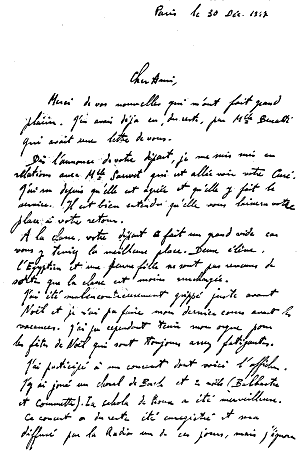 Paris le 30 Déc. 1947
Cher Ami,
Merci de vos nouvelles qui m'ont fait grand
plaisir. J'en avais déjà eu, du reste, par Mlle
qui avait une lettre de vous.
Dès l'annonce de votre départ, je me suis mis en
relations avec Mlle qui est allée voir votre Curé.
J'ai su depuis qu'elle est agréée et qu'elle y fait le
service. Il est bien entendu qu'elle vous laissera votre
place à votre retour.
A la classe, votre départ a fait un grand vide car
vous y teniez la meilleure place. Deux élèves,
l'Egyptien et une jeune fille ne sont pas revenus de
sorte que la classe est moins surchargée.
J'ai été malencontreusement grippé juste avant
Noël et je n'ai pu faire mon dernier cours avant les
vacances. J'ai pu cependant tenir mon orgue pour
les fêtes de Noël qui sont toujours assez fatigantes.
J'ai participé à un concert dont voici l'affiche.
J'y ai joué un choral de Bach et 2 noëls (Balbastre
et ). La schola de était merveilleuse.
Ce concert a du reste été enregistré et sera
diffusé par la Radio un de ces jours, mais j'ignore